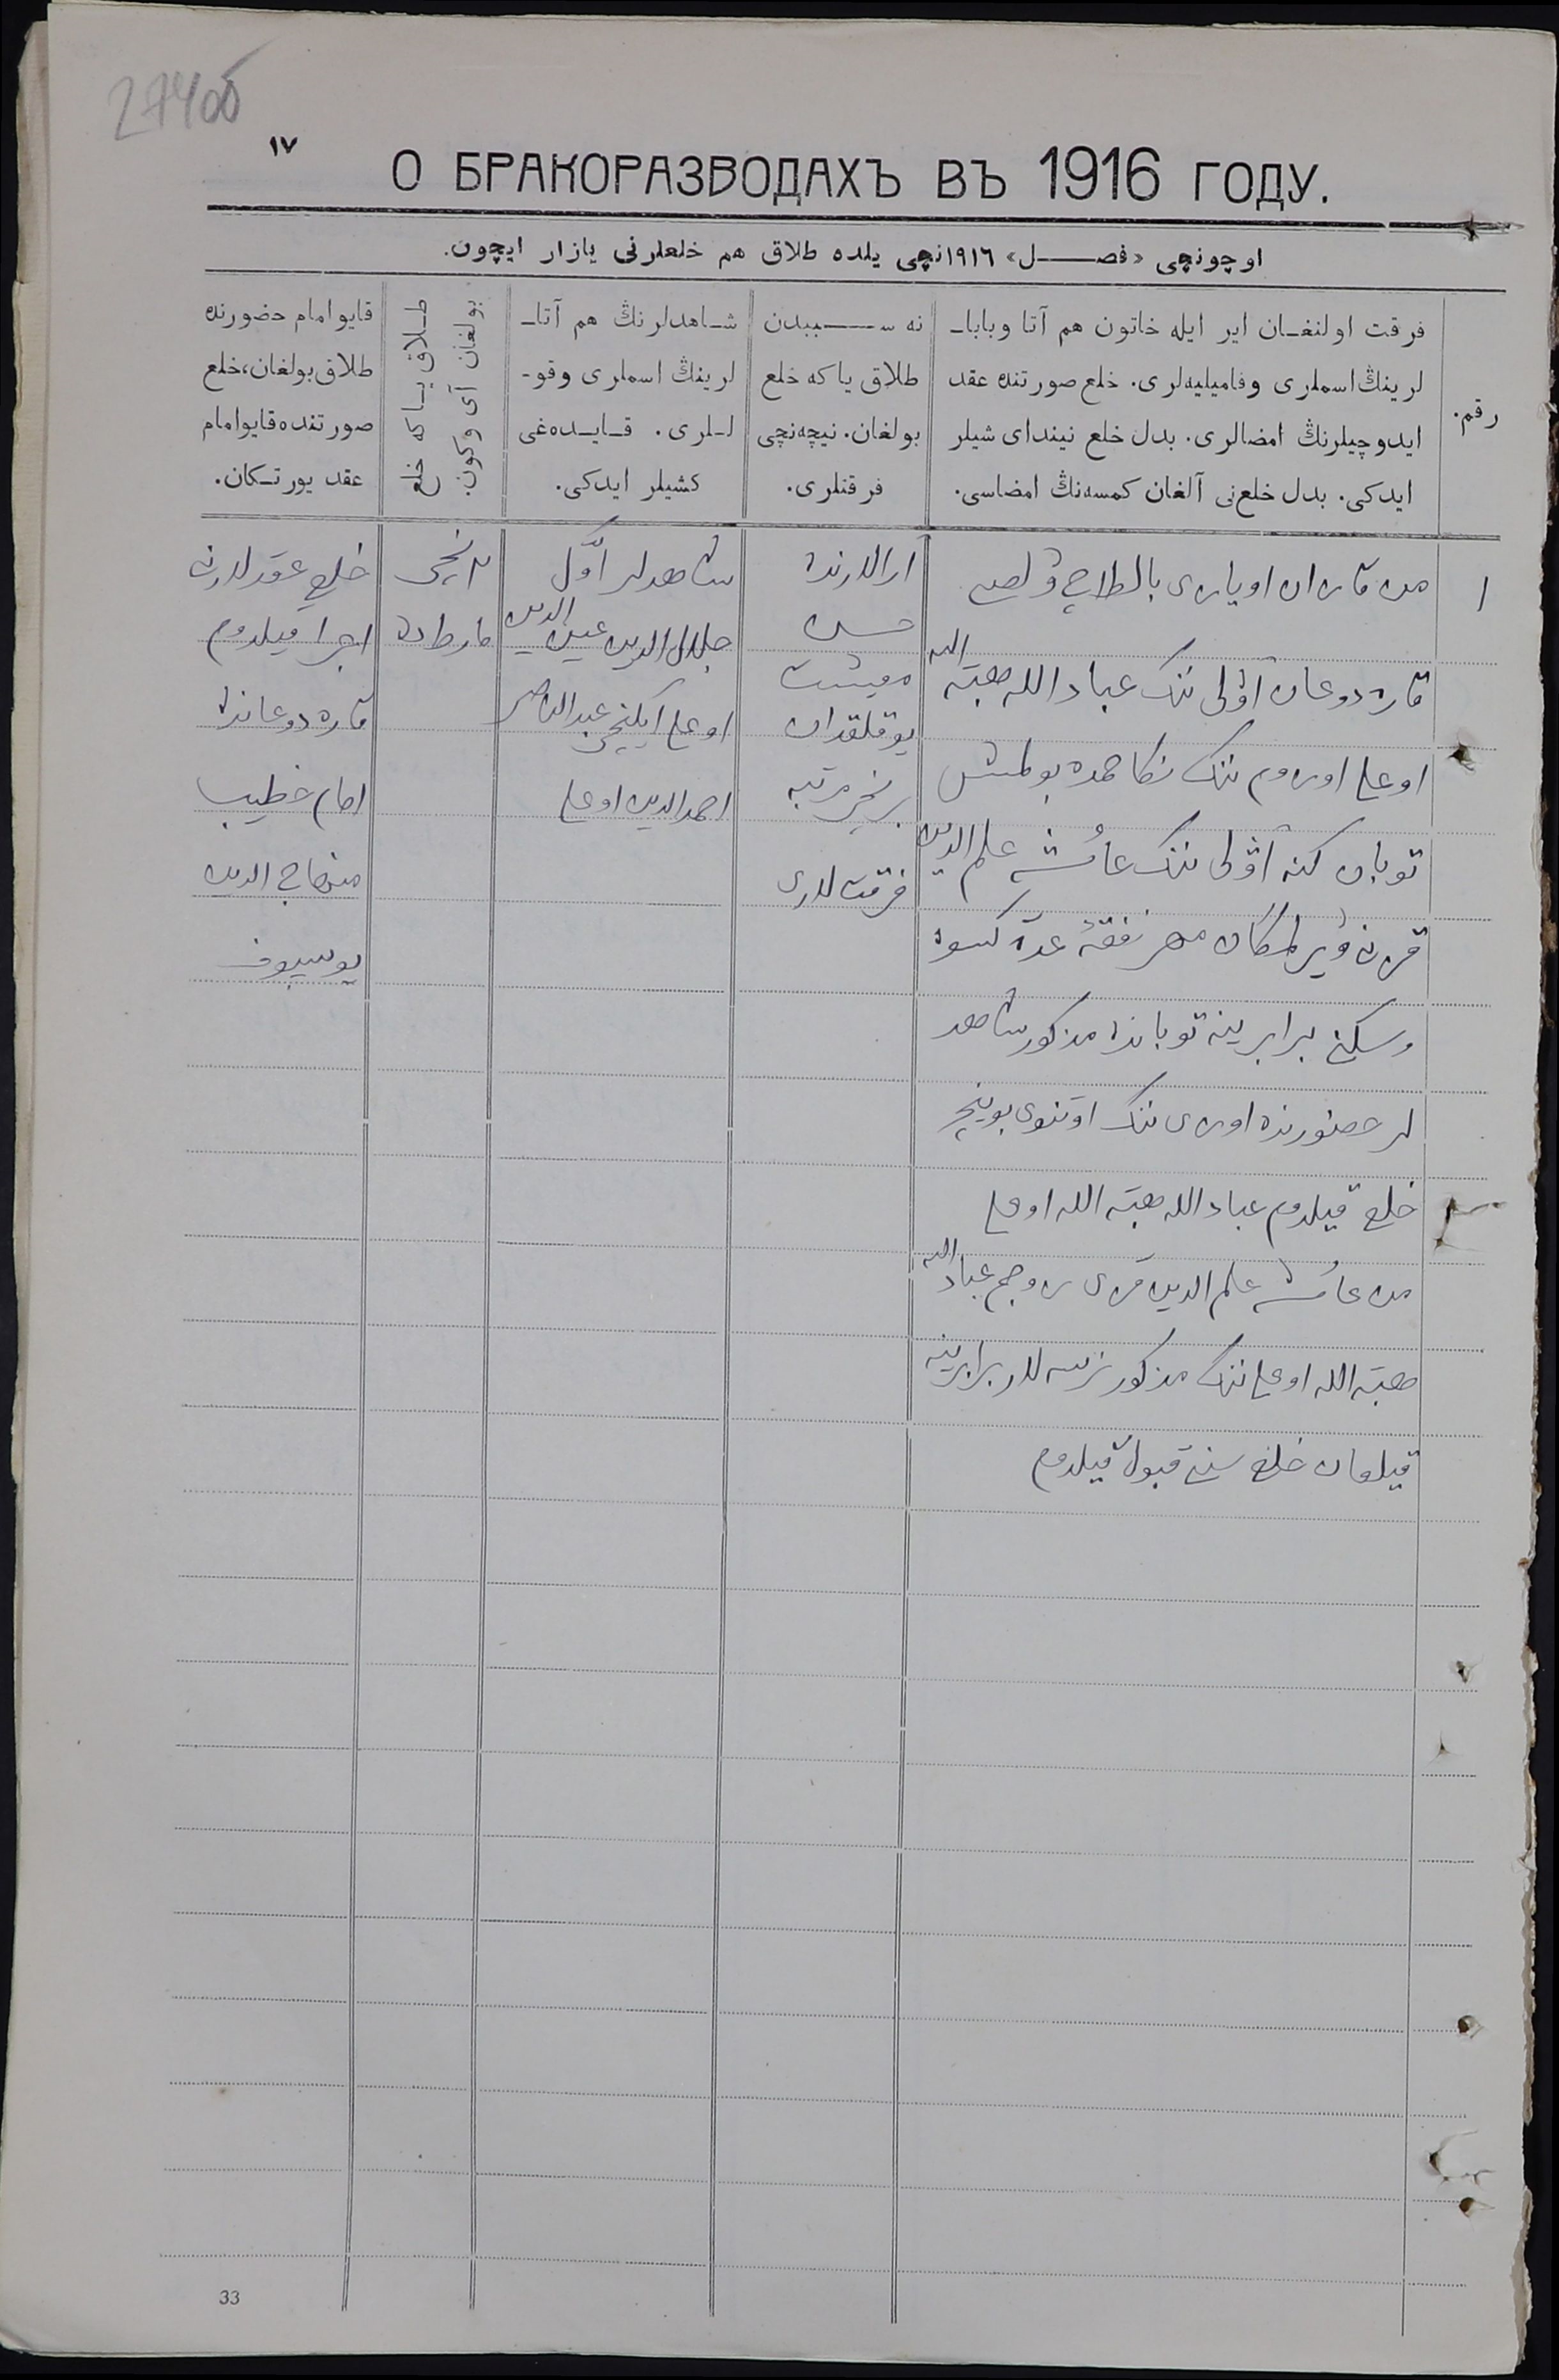 274об
١٧
О БРАКОРАЗВОДАХЪ ВЪ 1916 ГОДУ.
اوچونچی «فصـــل» ١٩١٦نچی یلده طلاق هم خلعلرنی یازار ایچون.
رقم.
فرقت اولنغـان ایر ایله خاتون هم آتا وبابا‌ـ
لرینڭ اسملری وفامیلیه‌لری. خلع صورتنده عقد
ایدوچیلرنڭ امضالری. بدل خلع نیندای شیلر
ایدکی. بدل خلع‌نی آلغان کمسه‌نڭ امضاسی.
نه ســـببدن
طلاق یا که خلع
بولغان. نیچه‌نچی
فرقتلری.
شـاهدلرنڭ هم آتا‌ـ
لرینڭ اسملری وقو‌ـ
لـلری. قـایـده‌غی
کشیلر ایدکی.
طـلاق یـا که خلع
بولغان آی وکون.
قایو امام حضورنده
طلاق بولغان، خلع
صورتنده قایو امام
عقد یورتـکان.
١
من قازان اویازی
قاره دوغان آولی ننک عباد الله هبة الله
اوغلی اوزوم ننک نکاحمده بولمش
آولی ننک عائشه علم الدین
قزینه ویرلمکان مهر نفقهٔ عدة کسوه
وسکنی برابرینه مذکور شاهد
لر حضورنده اوزی ننک اوتنوی بوینچه
خلع قیلدوم عباد الله هبة الله اوغلی
من عائشه علم الدین قزی زوجم عباد الله
هبة الله اوغلی ننک مذکور نرسه لار برابرینه
قیلغان خلع سنی قبول قیلدوم
ارالارنده
حسن
معیشت
یوقلقدان
برنچی مرتبه
فرقت لاری
شاهدلر اوّل
جلال الدین عین الدین
اوغلی ایکنچی عبد الناصر
احمد الدین اوغلی
مارطده
خلع عقدلارن
اجرا قیلدوم
قاره دوغانده
امام خطیب
منهاج الدین
یوسیوف
33